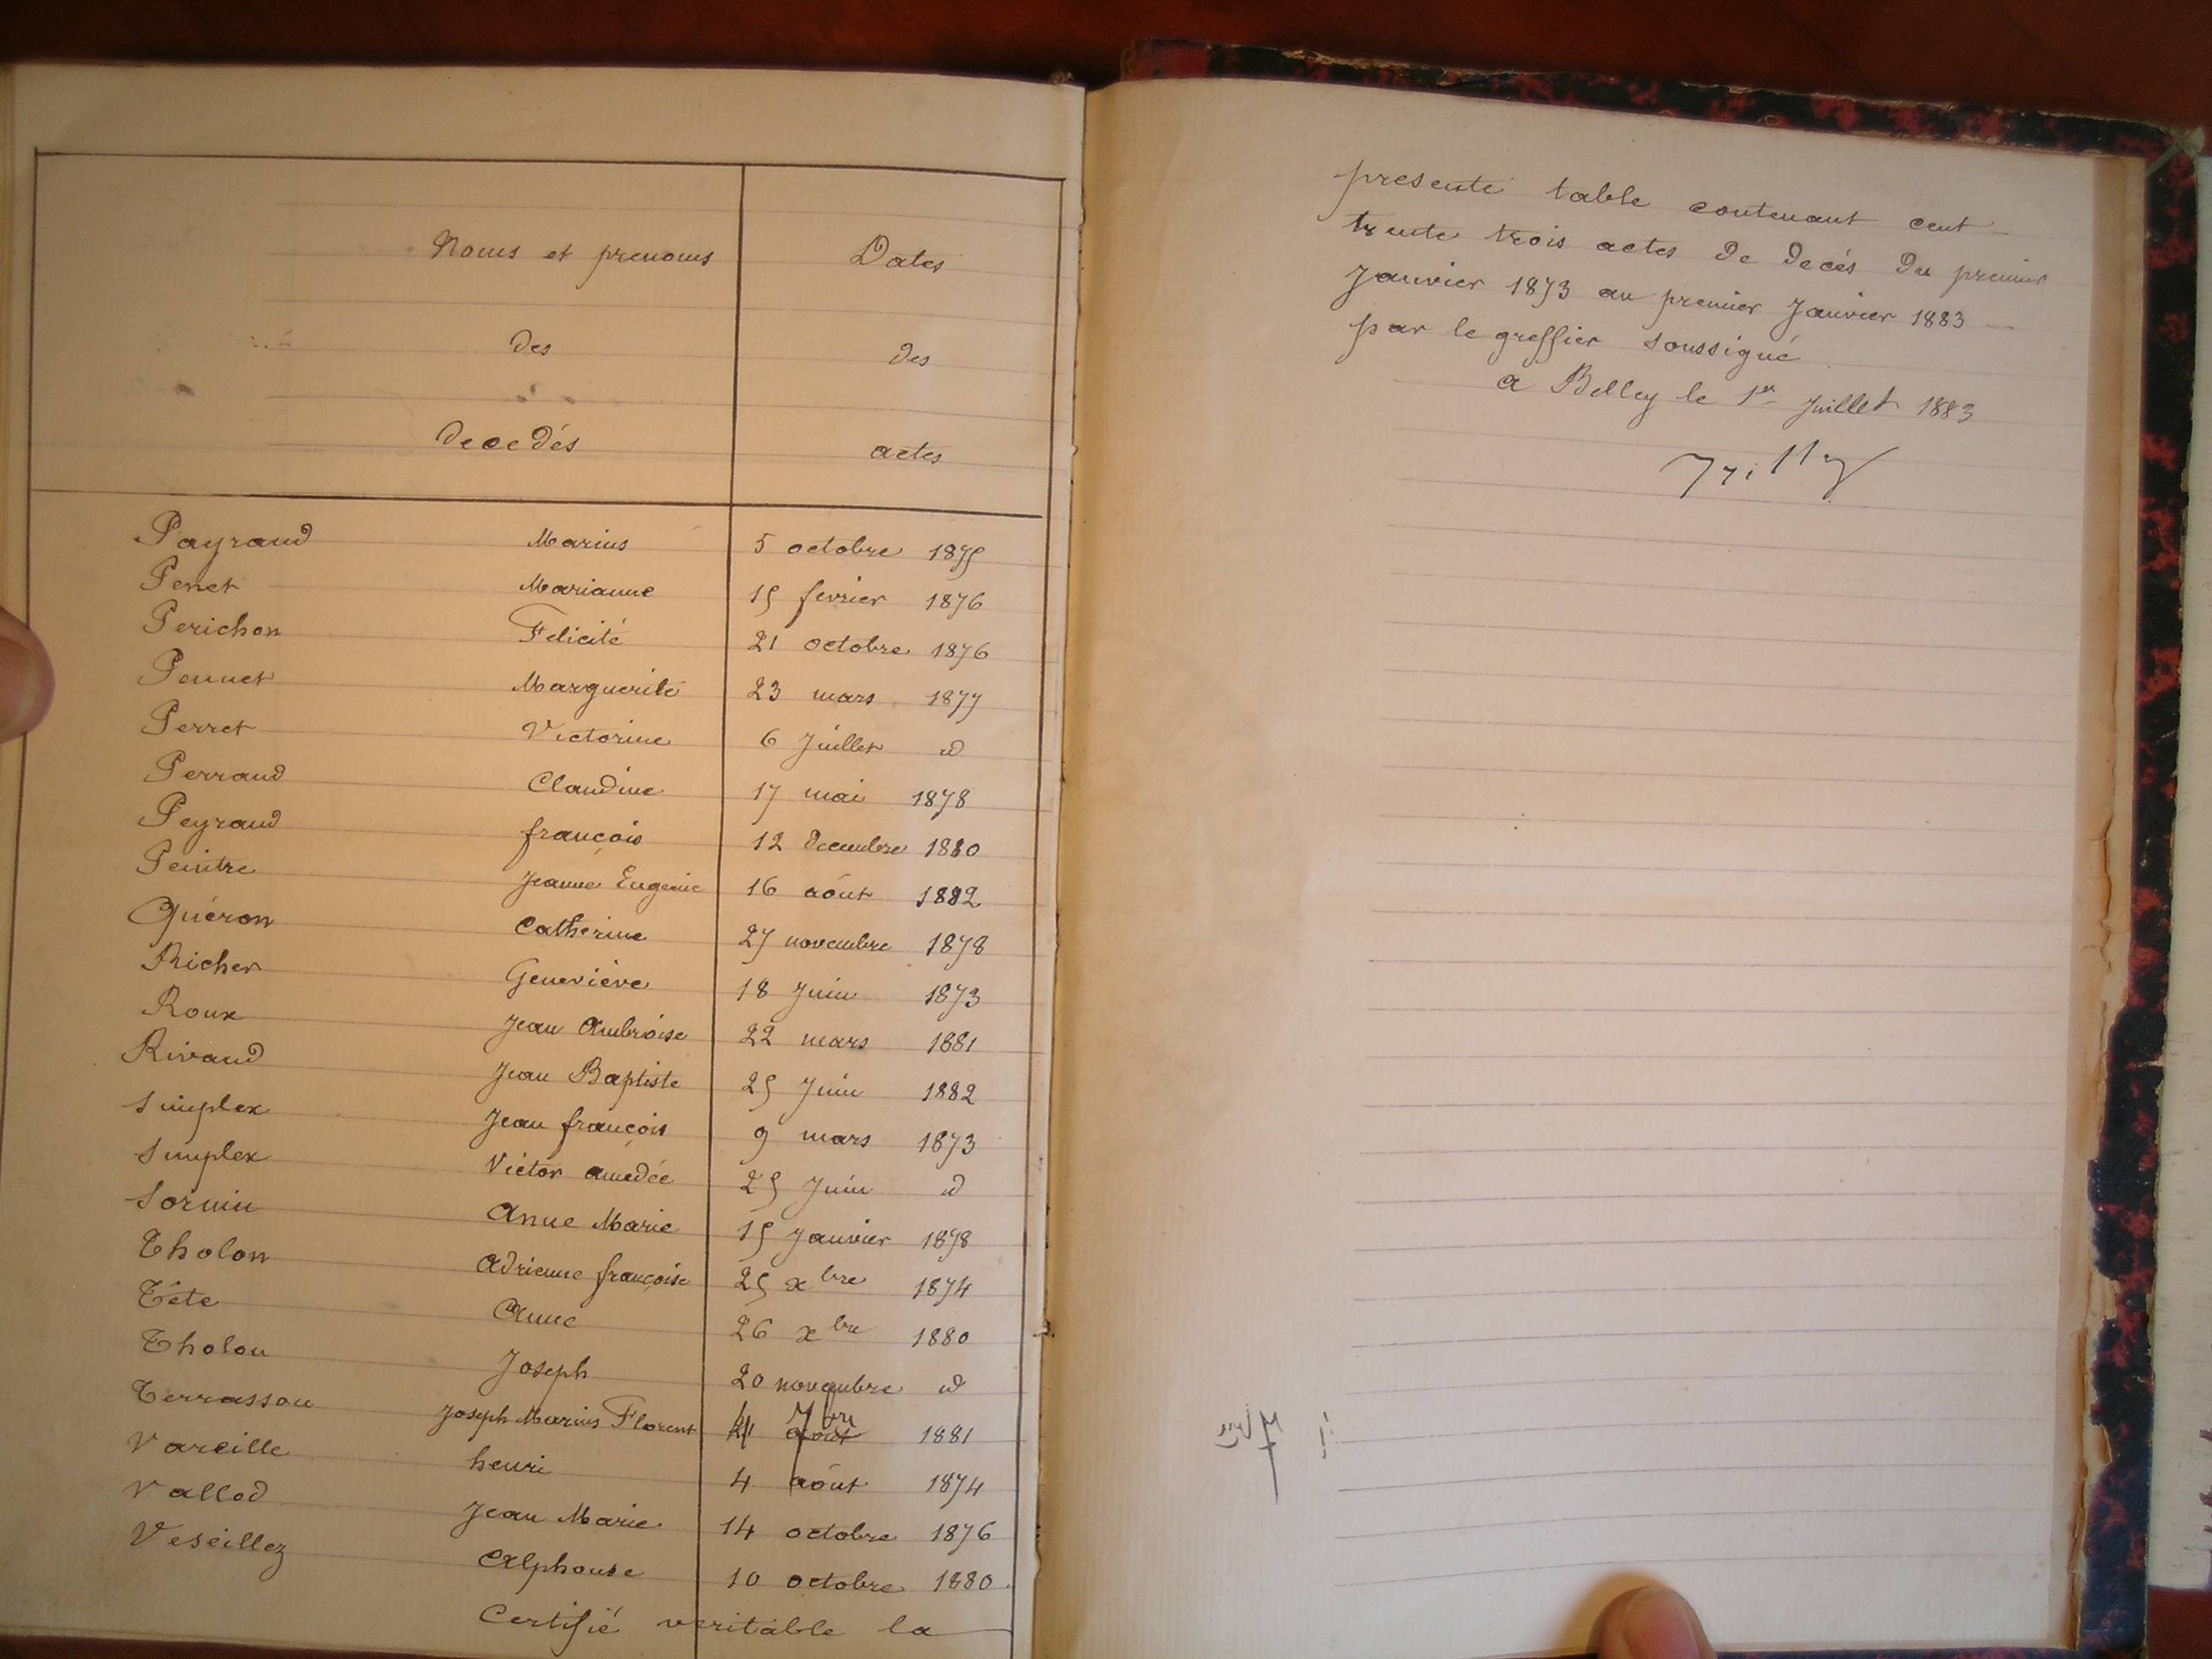 Noms et prenoms Dates
des des
decedés actes
Payraud Marius 5 octobre 1875
Penet Marianne 15 fevrier 1876
Perichon Felicité 21 octobre 1876
Pennet Marguerite 23 mars 1877
Perret Victorine 6 Juillet d
Perraud Claudine 17 mai 1878
Peyraud françois 12 decembre 1880
Peintre Jeanne Eugenie 16 août 1882
Quéron Catherine 27 novembre 1878
Richer Geneviève 18 Juin 1873
Roux Jean Ambroise 22 mars 1881
Rivaud Jean Baptiste 25 Juin 1882
Simplex Jean françois 9 mars 1873
Simplex Victor amedée 25 Juin d
Sornin Anne Marie 15 Janvier 1878
Tholon Adrienne françoise 25 xbre 1874
Tête Anne 26 xbre 1880
Tholon Joseph 20 novembre d
Terrasson Joseph Marius Florent 7bre 1881
Vareille henri 4 août 1874
Vallod Jean Marie 14 octobre 1876
Veseillez Alphonse 10 octobre 1880
Certifié veritable la
presente table contenant cent
trente trois actes de decés du premier
Janvier 1873 au premier Janvier 1883
par le greffier soussigné
a Belley le 1er Juillet 1883